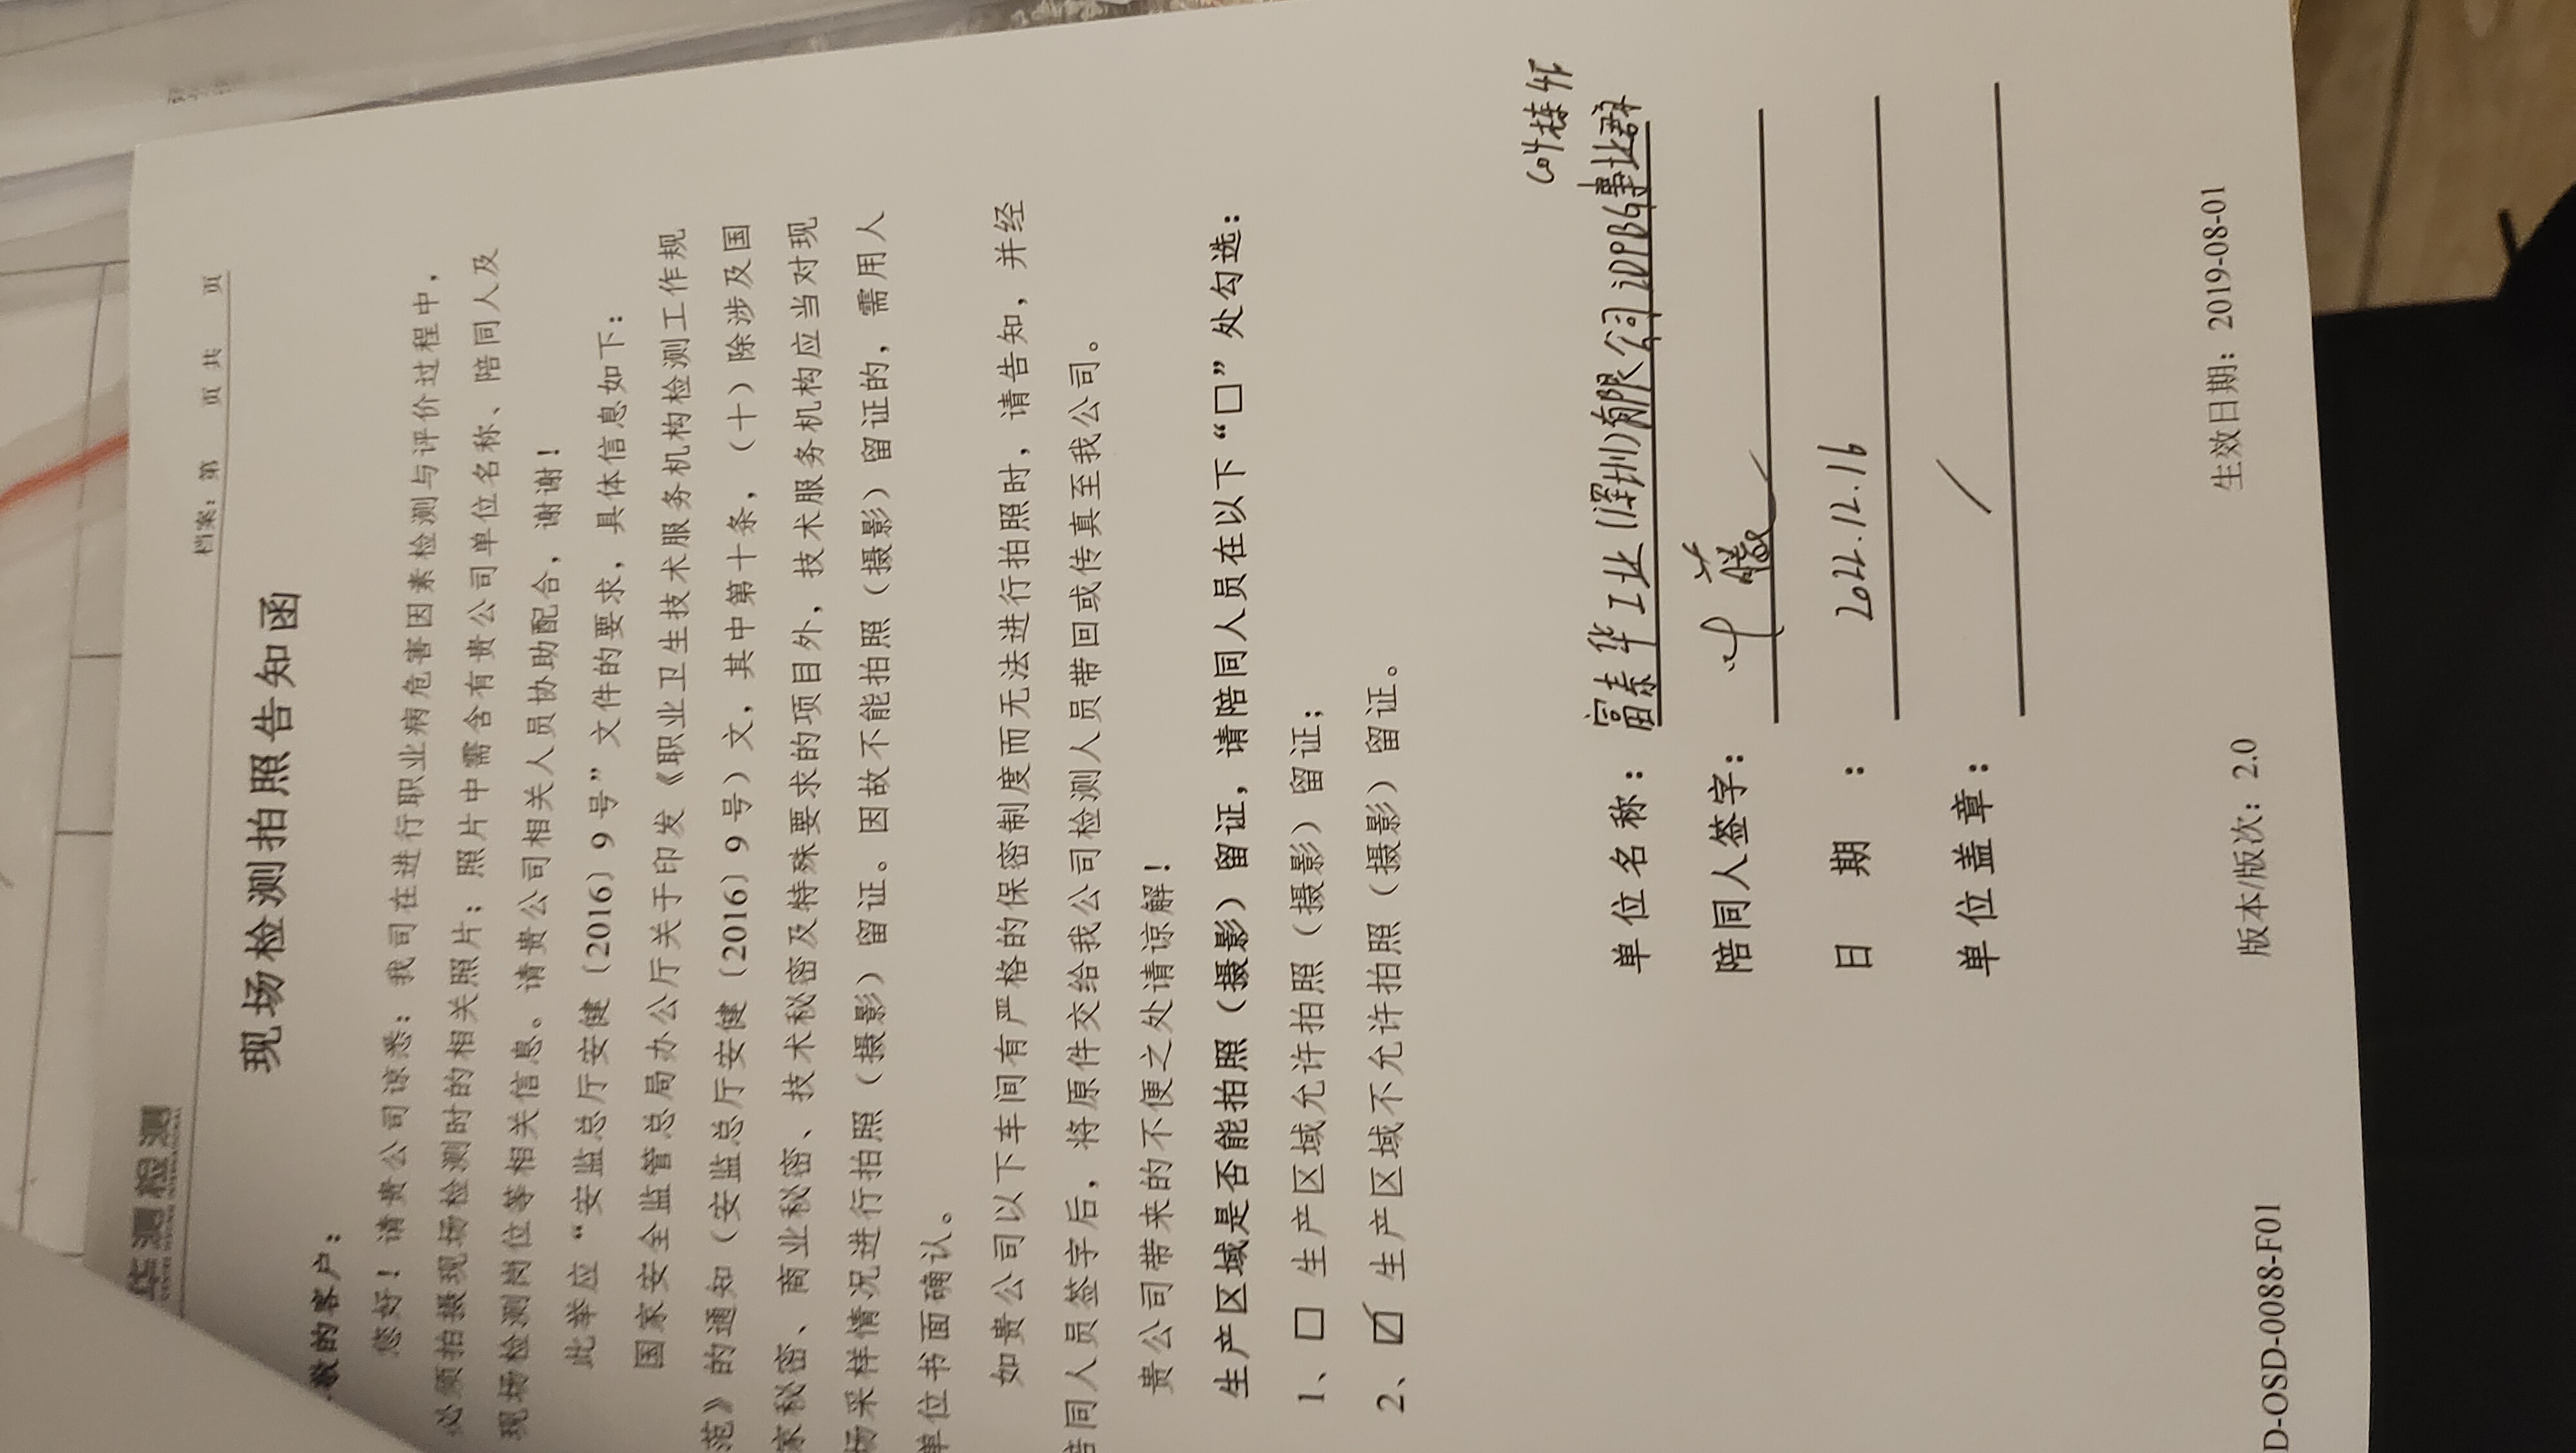 华测检测
CENTRE TESTING INTERNATIONAL
档案：第 页 共 页
现场检测拍照告知函
敬的客户：
您好！请贵公司谅悉：我司在进行职业病危害因素检测与评价过程中，
必须拍摄现场检测时的相关照片；照片中需含有贵公司单位名称、陪同人及
现场检测岗位等相关信息。请贵公司相关人员协助配合，谢谢！
此举应“安监总厅安健〔2016〕9号”文件的要求，具体信息如下：
国家安全监管总局办公厅关于印发《职业卫生技术服务机构检测工作规
范》的通知（安监总厅安健〔2016〕9号）文，其中第十条，（十）除涉及国
家秘密、商业秘密、技术秘密及特殊要求的项目外，技术服务机构应当对现
场采样情况进行拍照（摄影）留证。因故不能拍照（摄影）留证的，需用人
单位书面确认。
如贵公司以下车间有严格的保密制度而无法进行拍照时，请告知，并经
陪同人员签字后，将原件交给我公司检测人员带回或传真至我公司。
贵公司带来的不便之处请谅解！
生产区域是否能拍照（摄影）留证，请陪同人员在以下“□”处勾选：
1、□ 生产区域允许拍照（摄影）留证；
2、☑ 生产区域不允许拍照（摄影）留证。
G04栋4F
单位名称：富泰华工业(深圳)有限公司iDPBG事业群
陪同人签字：叶薇
日 期 ：2022.12.16
单位盖章：/
D-OSD-0088-F01 版本/版次：2.0 生效日期：2019-08-01